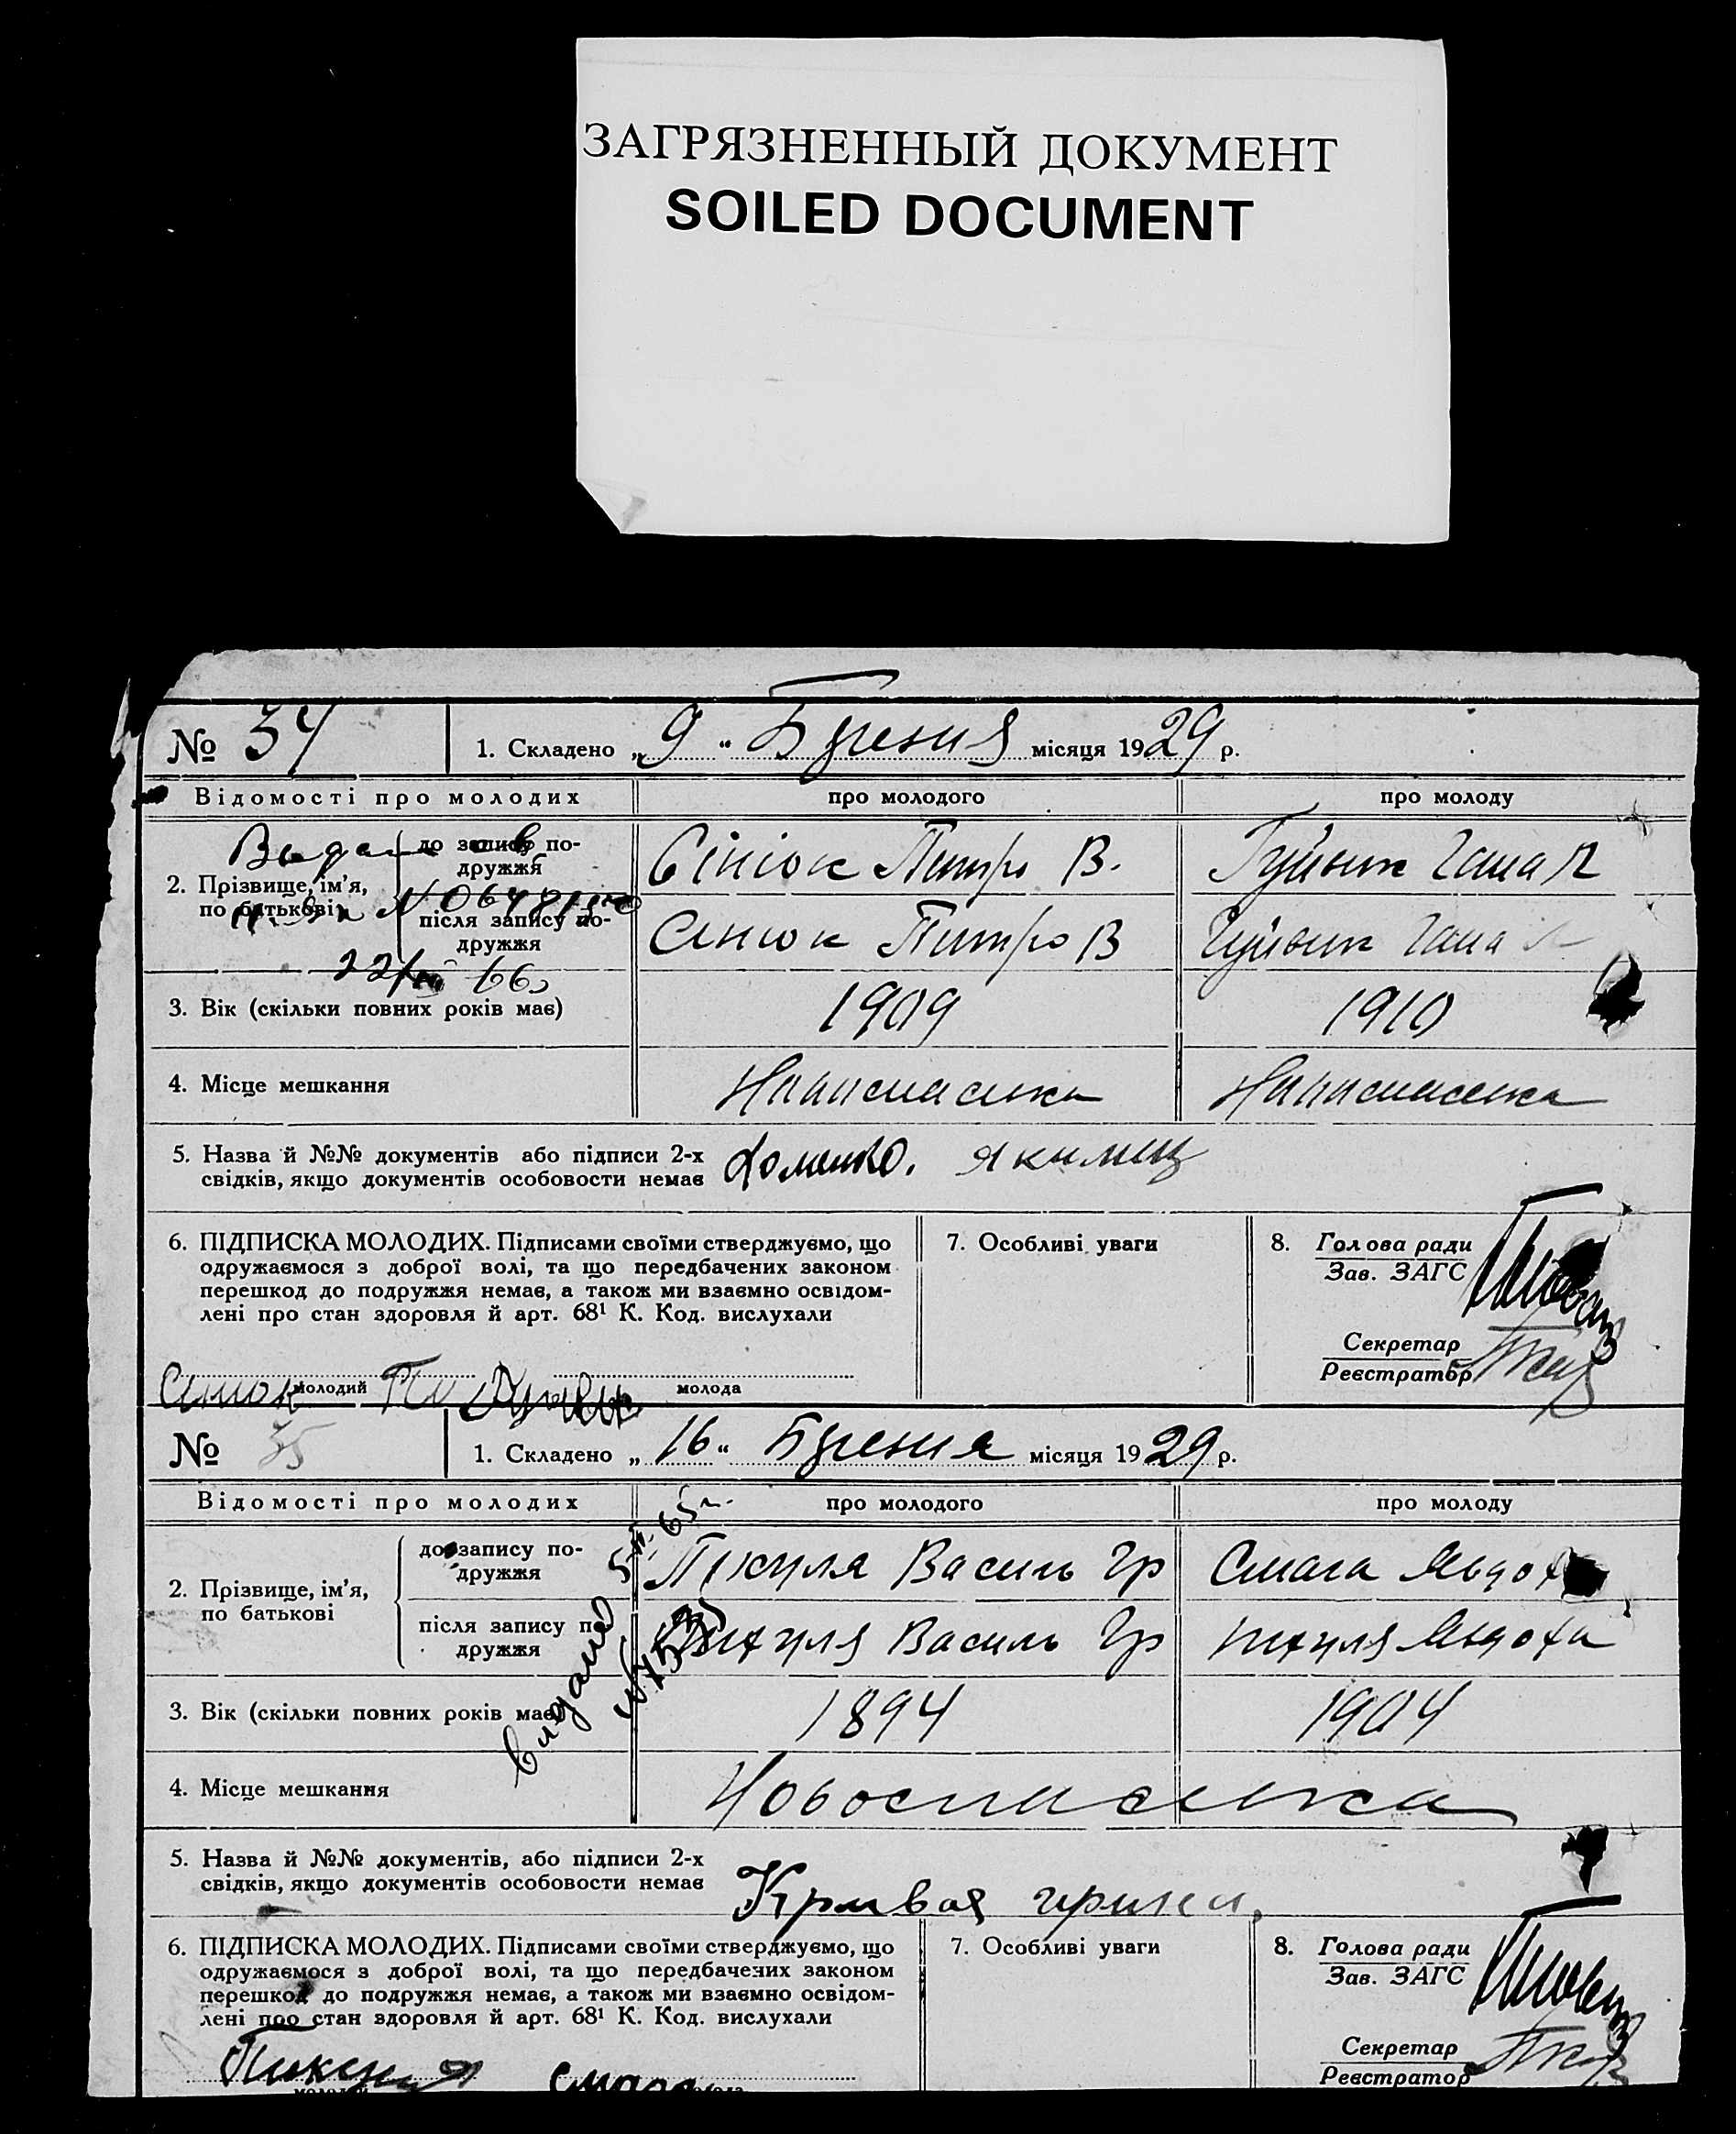 ЗАГРЯЗНЕННЫЙ ДОКУМЕНТ
SOILED DOCUMENT
№ 34
1. Складено „ 9 “ Березня місяця 1929 р.
Відомості про молодих
про молодого
про молоду
2. Прізвище, ім'я, по батькові
до запису подружжя
Сінюк Петро В.
після запису подружжя
Синюк Петро В
3. Вік (скільки повних років має)
1909
1910
4. Місце мешкання
5. Назва й №№ документів або підписи 2-х
свідків, якщо документів особовости немає
6. ПІДПИСКА МОЛОДИХ. Підписами своїми стверджуємо, що
одружаємося з доброї волі, та що передбачених законом
перешкод до подружжя немає, а також ми взаємно освідом-
лені про стан здоровля й арт. 68¹ К. Код. вислухали
молодий
молода
7. Особливі уваги
8. Голова ради
Зав. ЗАГС
Секретар
Реєстратор
№ 35
1. Складено „ 16 “ Березня місяця 1929 р.
Відомості про молодих
про молодого
про молоду
2. Прізвище, ім'я, по батькові
до запису по-
дружжя
Василь Гр
Смага Явдоха
після запису по-
дружжя
Василь Гр
Явдоха
видано
3. Вік (скільки повних років має)
1894
1904
4. Місце мешкання
Новоспасівка
5. Назва й №№ документів, або підписи 2-х
свідків, якщо документів особовости немає
Кривая
6. ПІДПИСКА МОЛОДИХ. Підписами своїми стверджуємо, що
одружаємося з доброї волі, та що передбачених законом
перешкод до подружжя немає, а також ми взаємно освідом-
лені про стан здоровля й арт. 68¹ К. Код. вислухали
7. Особливі уваги
8. Голова ради
Зав. ЗАГС
Секретар
Реєстратор